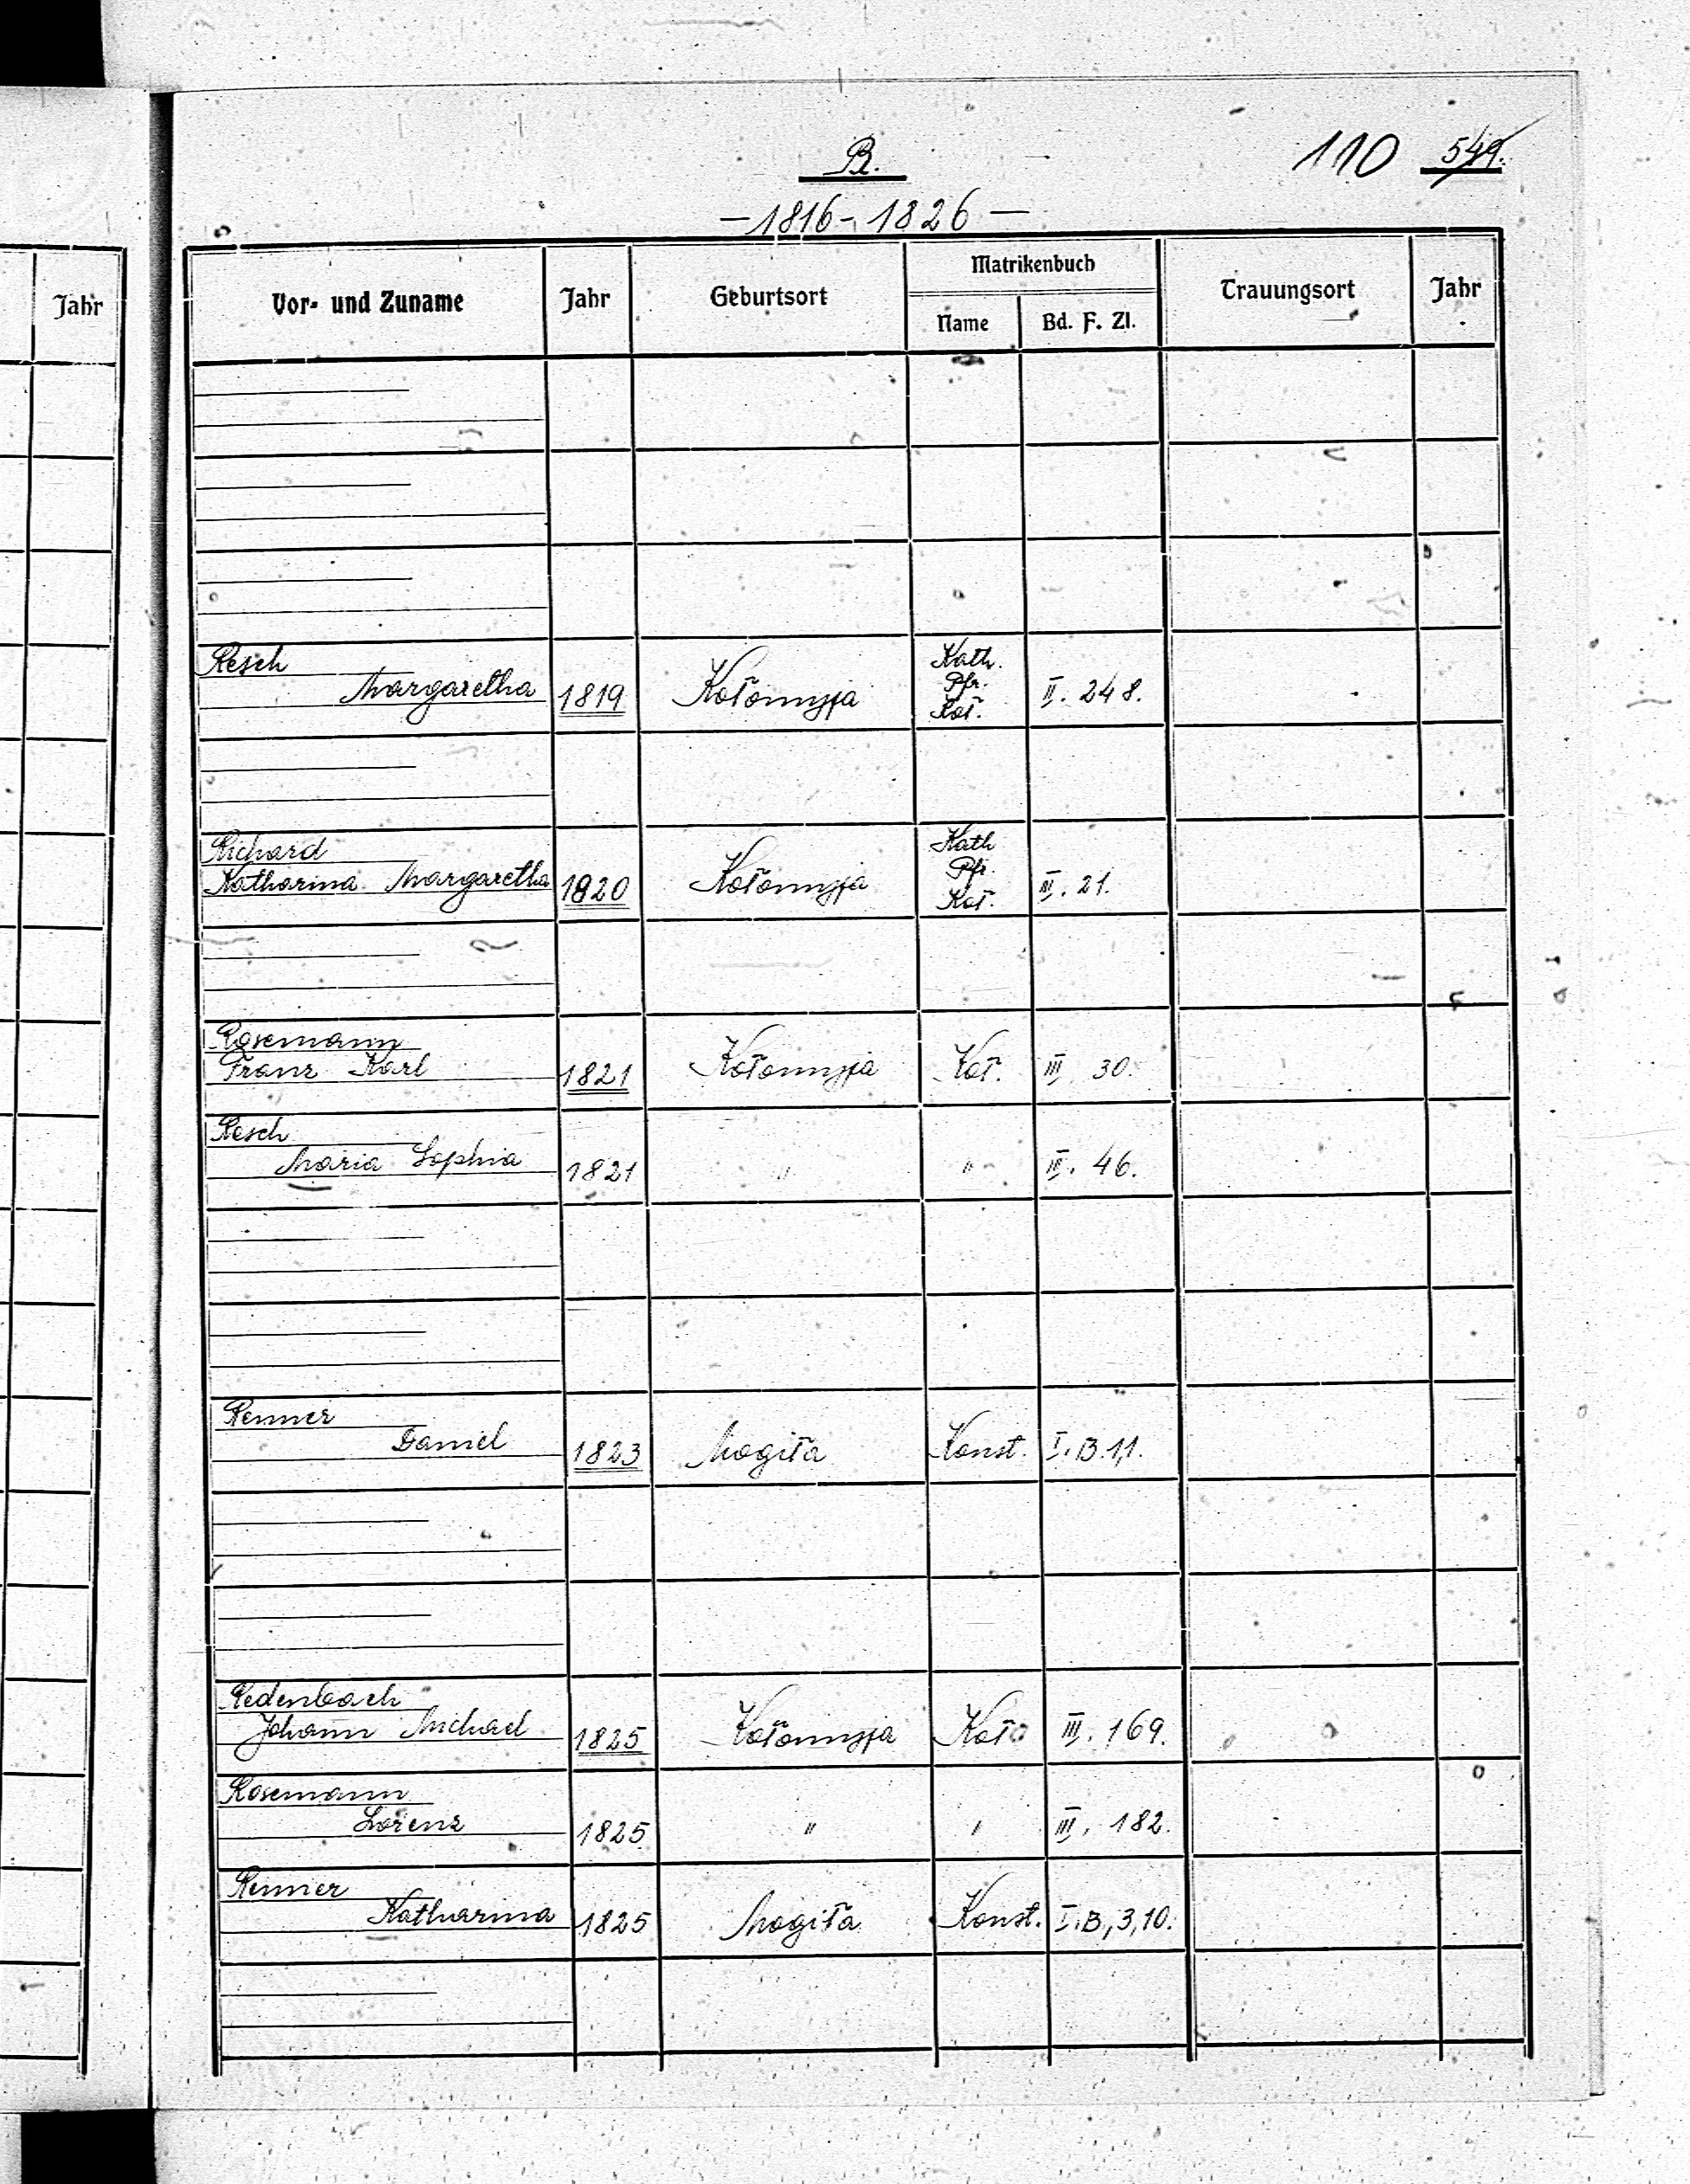 R. 110 549.
— 1816 - 1826 —
Jahr
Vor- und Zuname Jahr Geburtsort Matrikenbuch Trauungsort Jahr
Name Bd. F. Zl.
Resch Kath.
Margaretha 1819 Kołomyja Pfr. II. 248.
Koł.
Richard Kath
Katharina Margaretha 1820 Kołomyja Pfr. III. 21.
Koł.
Rosemann
Franz Karl 1821 Kołomyja Koł. III. 30.
Resch
Maria Sophia 1821 " " III. 46.
Renner
Daniel 1823 Mogiła Konst. I. B. 1,1.
Redenbach
Johann Michael 1825 Kołomyja Koł. III. 169.
Rosemann
Lorenz 1825 " " III. 182.
Renner
Katharina 1825 Mogiła Konst. I. B, 3, 10.